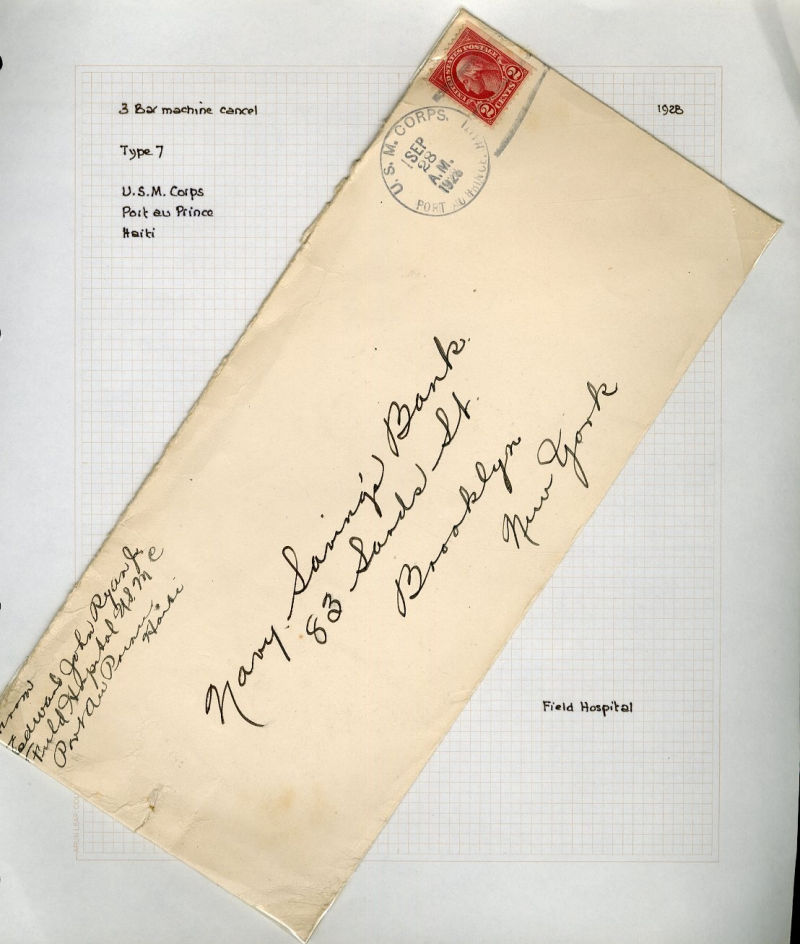 3 Bar machine cancel
1928
Type 7
U.S.M. Corps
Port au Prince
Haiti
UNITED STATES POSTAGE
2 CENTS 2
U. S. M. CORPS.
SEP
28
A.M.
1928
PORT AU PRINCE
Navy. Saving's Bank
83 Sands St.
Brooklyn
New York
From
Edward John Ryan Jr
Field Hospital USMC
Port Au Prince
Haiti
Field Hospital